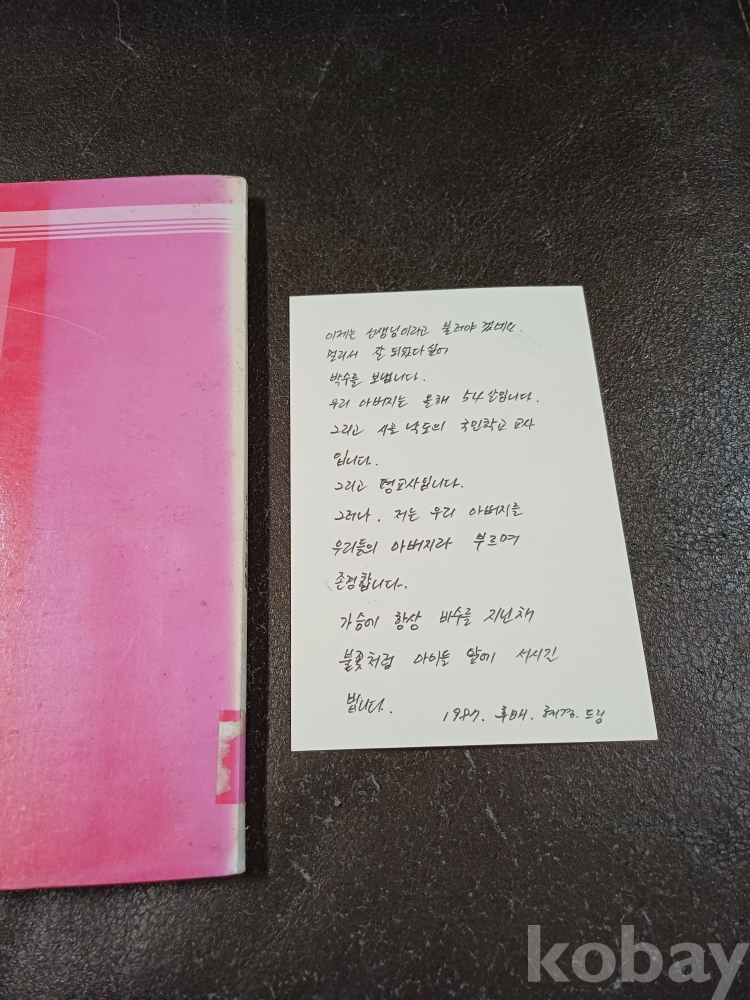 이제는 선생님이라고 불러야 겠네요.
멀리서 잘 되었다 싶어
박수를 보냅니다.
우리 아버지는 올해 54살입니다.
그리고 시골 낙도의 국민학교 교사
입니다.
그리고 평교사입니다.
그러나, 저는 우리 아버지를
우리들의 아버지라 부르며
존경합니다.
가슴에 항상 비수를 지닌채
불꽃처럼 아이들 앞에 서시길
빕니다.
1987. 후배. 혜경. 드림
kobay